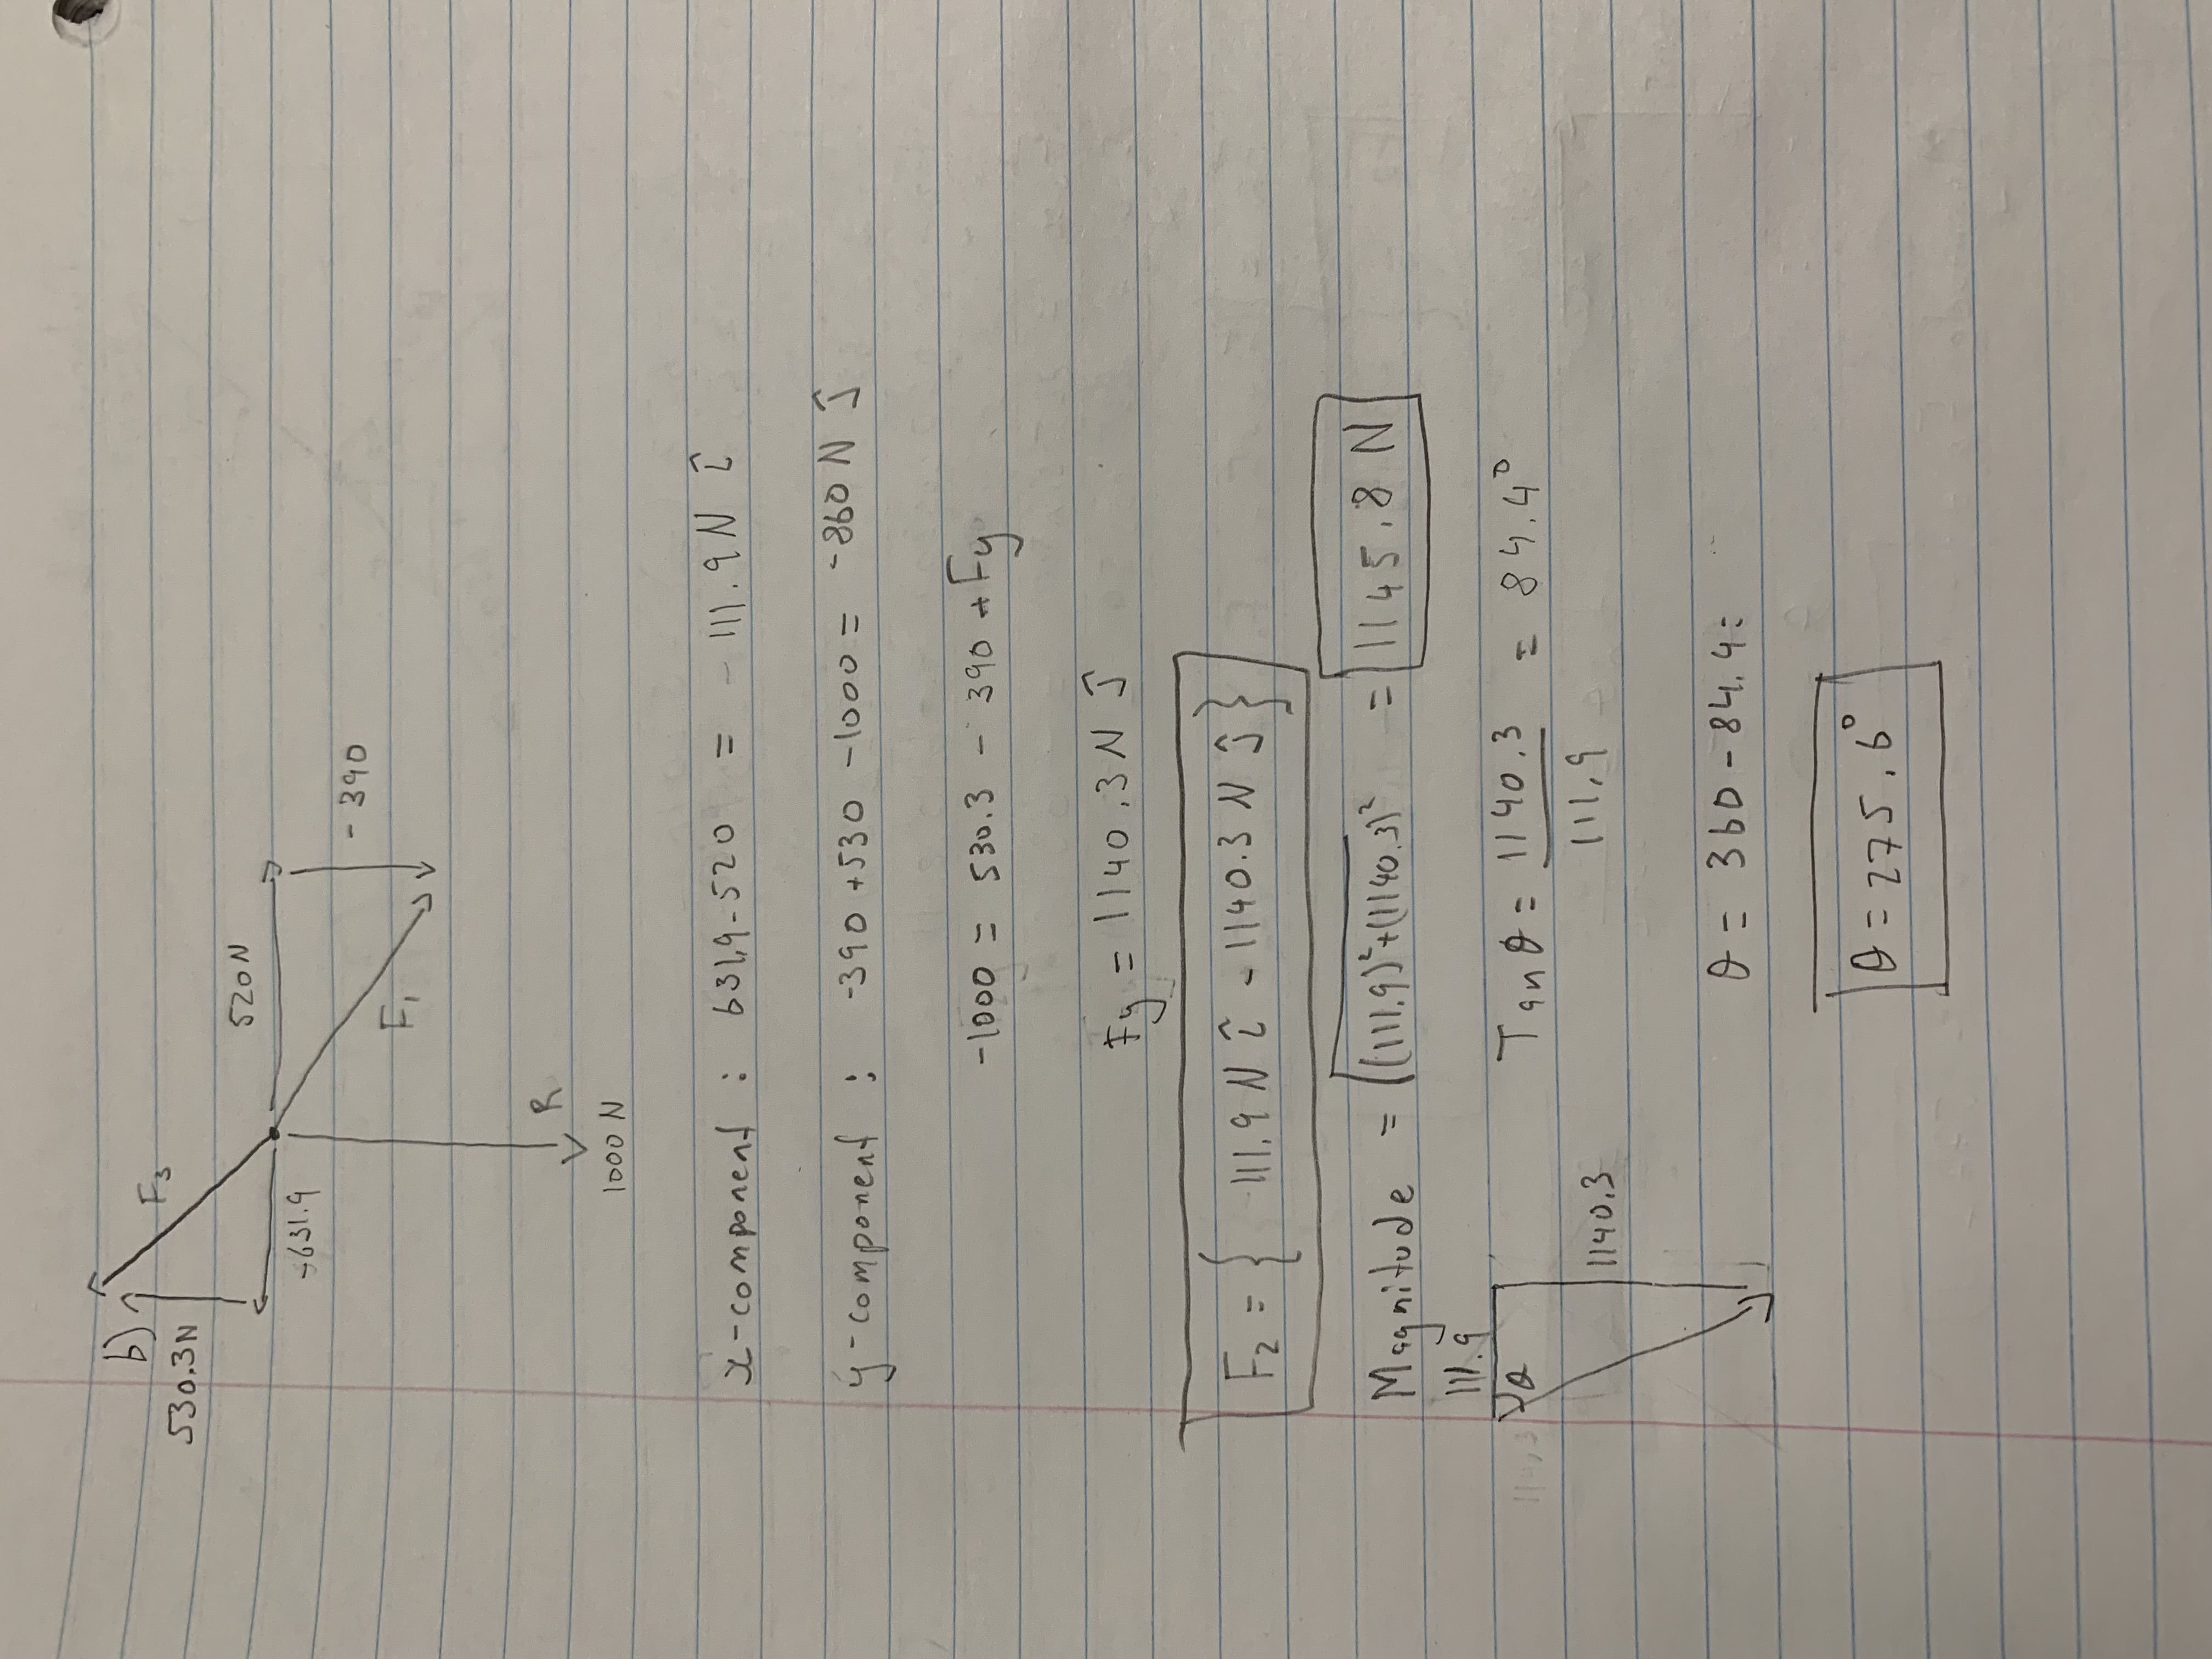 b)
F3
530.3N
520N
-631.9
-390
F1
R
1000 N
x-component : 631.9-520 = -111.9N î
y-component : -390 +530 -1000 = -860 N ĵ
-1000 = 530.3 - 390 + Fy
Fy = 1140.3N ĵ
F2 = { 111.9 N î - 1140.3 N ĵ }
Magnitude = √(111.9)²+(1140.3)² = 1145.8 N
111.9
θ
Tanθ = 1140.3/111.9 = 84.4°
1140.3
θ = 360-84.4=
θ = 275.6°